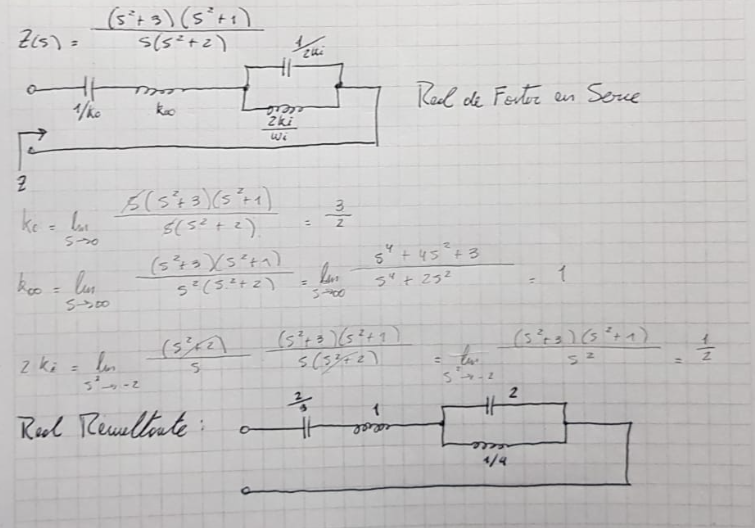 Z(s) = (s²+3)(s²+1) / s(s²+2)
1/2ki
1/k₀ k∞ 2ki/wi
Red de Foster en Serie
Z
k₀ = lim s→0 s(s²+3)(s²+1) / s(s²+2) = 3/2
k∞ = lim s→∞ (s²+3)(s²+1) / s²(s²+2) = lim s→∞ s⁴ + 4s² + 3 / s⁴ + 2s² = 1
2ki = lim s²→-2 (s²+2) / s (s²+3)(s²+1) / s(s²+2) = lim s²→-2 (s²+3)(s²+1) / s² = 1/2
Red Resultante: 2/3 1 2
1/4